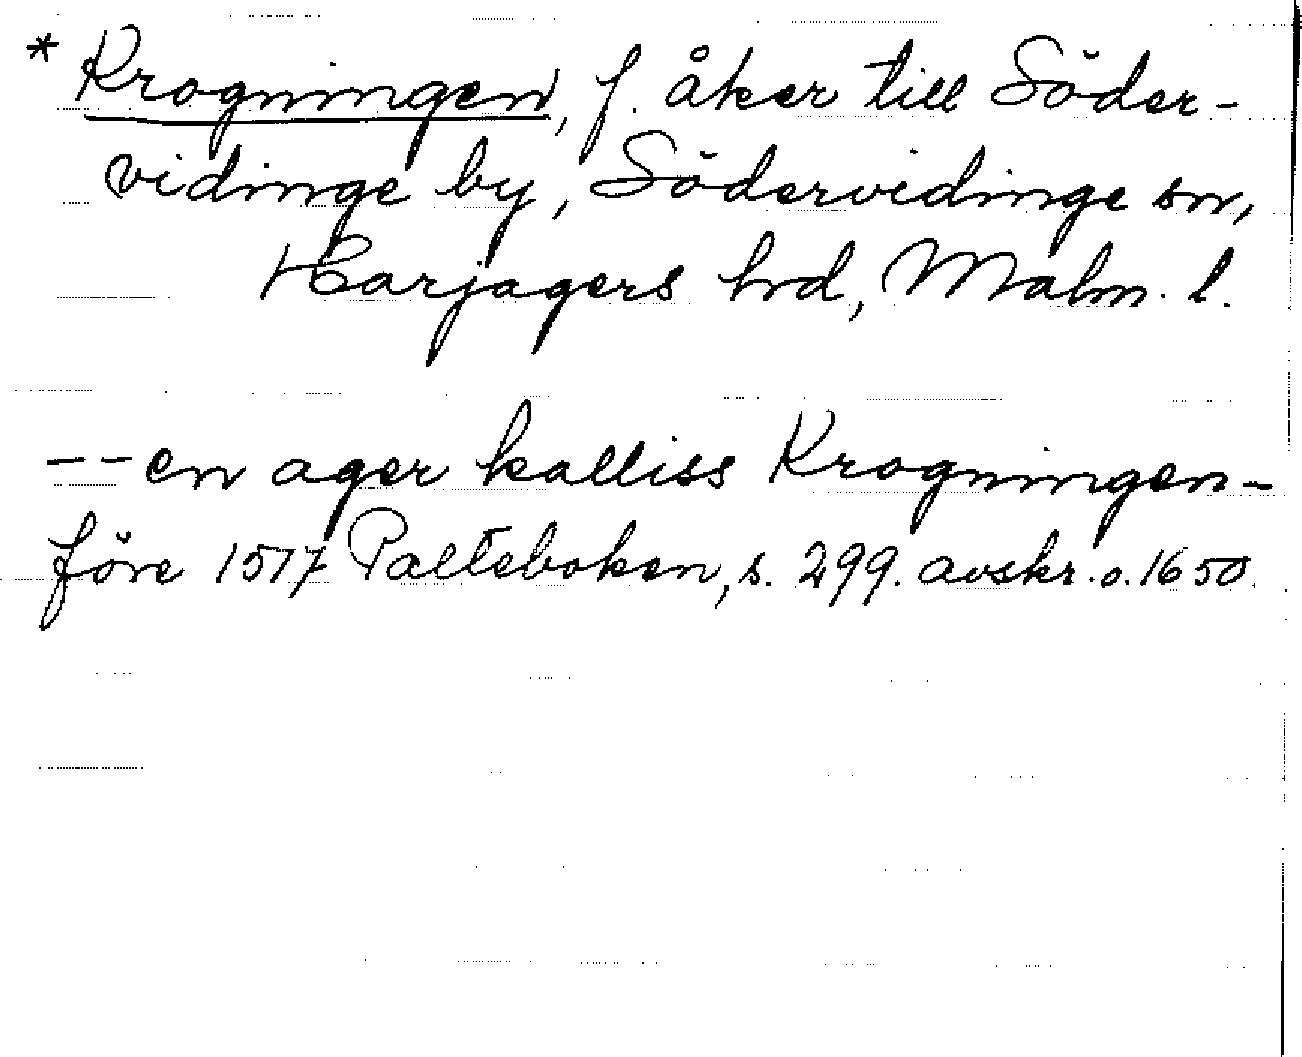 * Krogningen, f. åker till Söder-
vidinge by, Södervidinge sn,
Harjagers hrd, Malm. l.
-- en ager kalliss Krogningen-
före 1517 Palteboken, s. 299. avskr. o. 1650.